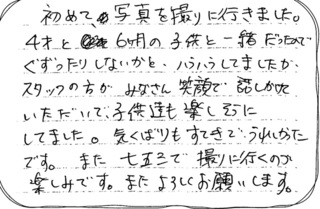 初めて、写真を撮りに行きました。
4才と 6ヶ月の子供と一緒だったので
ぐずったりしないかと、ハラハラしてましたが、
スタッフの方が みなさん 笑顔で 話しかけて
いただいて、子供達も楽しそうに
してました。気くばりもすてきで うれしかった
です。また 七五三で 撮りに行くのが
楽しみです。また よろしくお願いします。